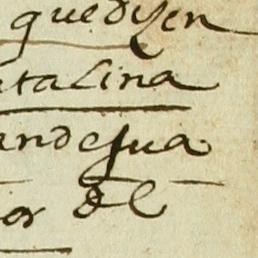 quedizen
atalina
andesua
or del